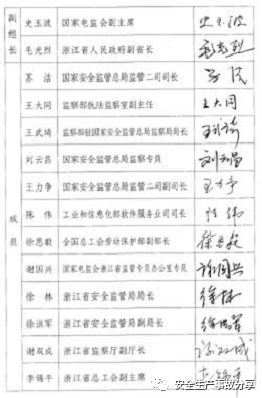 副组长 史玉波 国家电监会副主席 史玉波
毛光烈 浙江省人民政府副省长 毛光烈
成员 苏洁 国家安全监管总局监管二司司长 苏洁
王大同 监察部执法监察室副主任 王大同
王武琦 监察部驻国家安全监管总局监察局局长 王武琦
刘云昌 国家安全监管总局监察专员 刘云昌
王力争 国家安全监管总局监管二司副司长 王力争
陈伟 工业和信息化部软件服务业司司长 陈伟
徐思毅 全国总工会劳动保护部副部长 徐思毅
谢国兴 国家电监会浙江省监管专员办公室专员 谢国兴
徐林 浙江省安全监管局局长 徐林
徐洪军 浙江省安全监管局副局长 徐洪军
谢双成 浙江省监察厅副厅长 谢双成
李锦平 浙江省总工会副主席
安全生产事故分享